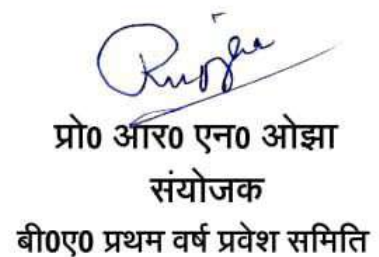 प्रो0 आर0 एन0 ओझा
संयोजक
बी0ए0 प्रथम वर्ष प्रवेश समिति